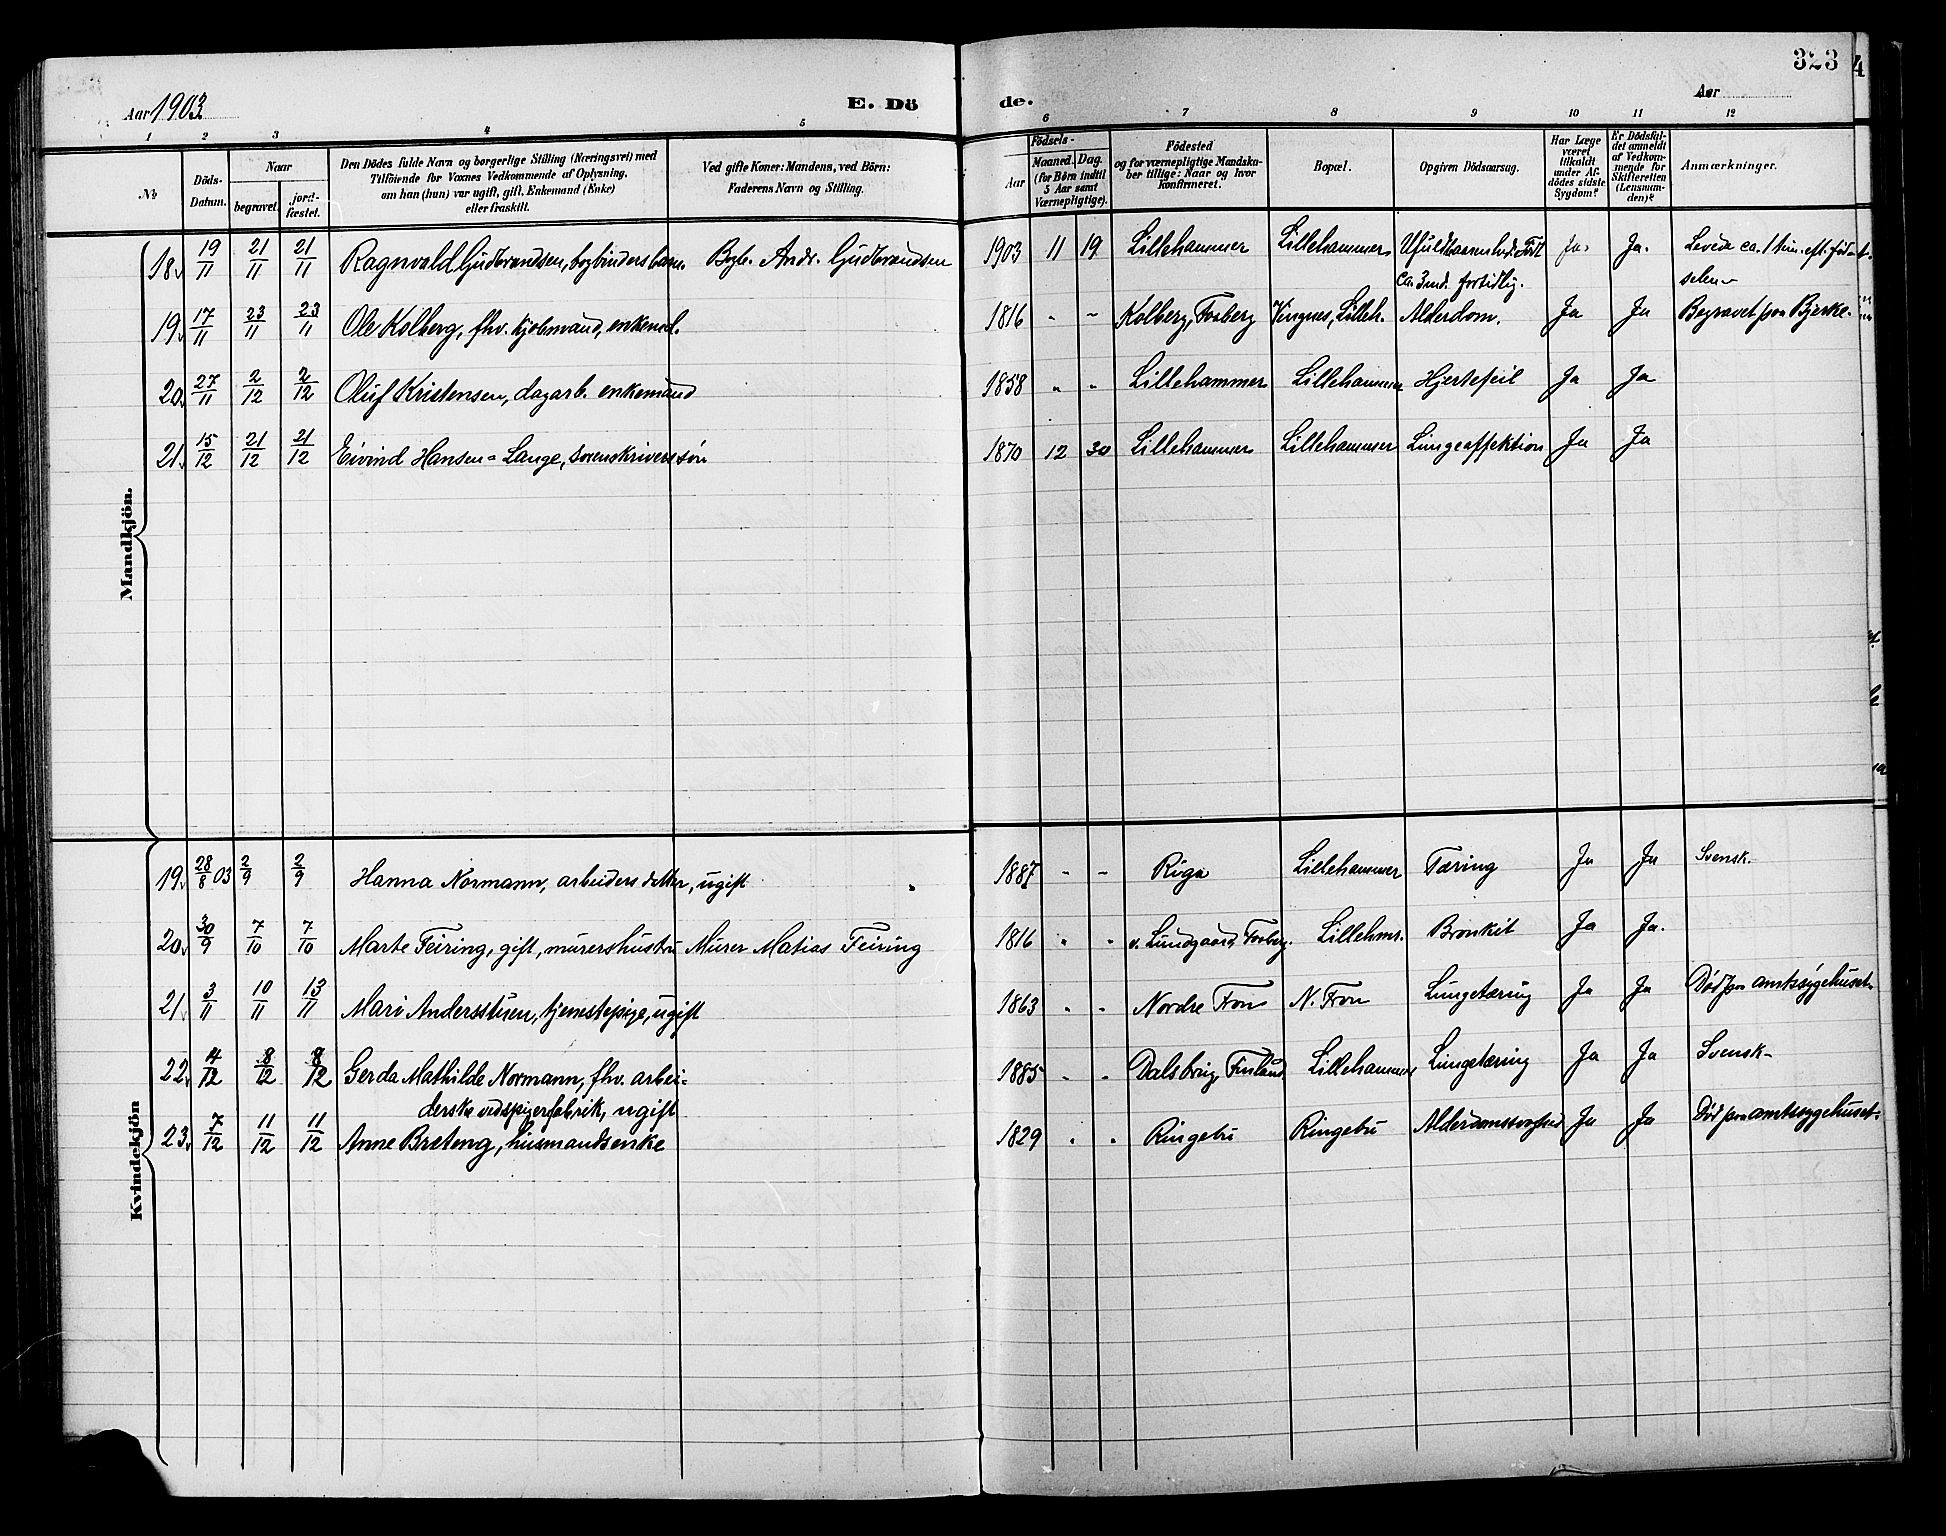 323
4
Aar 1903
E. Dö de.
Aar
1 2 3 4 5 6 7 8 9 10 11 12
№
Döds-Datum.
Naar begravet. jordfæstet.
Den Dödes fulde Navn og borgerlige Stilling (Næringsvei) med Tilföiende for Voxnes Vedkommende af Oplysning, om han (hun) var ugift, gift, Enkemand (Enke) eller fraskilt.
Ved gifte Koner: Mandens, ved Börn: Faderens Navn og Stilling.
Födsels-
Aar
Maaned. Dag. (for Börn indtil 5 Aar samt Værnepligtige).
Födested og for værnepligtige Mandskaber tillige: Naar og hvor konfirmeret.
Bopæl.
Opgiven Dödsaarsag.
Har Læge været tilkaldt under Afdödes sidste Sygdom?
Er Dödsfaldet anmeldt af Vedkommende for Skifteretten (Lensmanden)?
Anmærkninger.
Mandkjön.
18. 19/11 21/11 21/11 Ragnvald Gudbrandsen, bogbinders barn. Bogb. Andr. Gudbrandsen 1903 11 19 Lillehammer Lillehammer Ufuldbaarenhed. Født Ja. Ja. Levede ca. 1 tim. eft. föd-
ca. 3 md. fortidlig. selen
19. 17/11 23/11 23/11 Ole Kolberg, fhv. kjøbmand, enkemd. 1816 " " Kolberg, Faaberg Vingnes, Lilleh. Alderdom. Ja Ja Begravet paa Bjerke.
20. 27/11 2/12 2/12 Oluf Kristensen, dagarb. enkemand 1858 " " Lillehammer Lillehammer Hjertefeil Ja Ja
21. 15/12 21/12 21/12 Eivind Hansen-Lange, sorenskriverssøn 1870 12 30 Lillehammer Lillehammer Lungeaffektion Ja Ja
Kvindekjön
19. 28/8 03 2/9 2/9 Hanna Normann, arbeiders datter, ugift " 1887 " " Riga Lillehammer Tæring Ja Ja Svensk.
20. 30/9 7/10 7/10 Marte Feiring, gift, murershustru Murer Matias Feiring 1816 " " v. Lundgaard, Faaberg. Lillehmr. Bronkit Ja Ja.
21. 3/11 10/11 13/11 Mari Andersstuen, tjenestepige, ugift 1863 " " Nordre Fron N. Fron Lungetæring Ja Ja Død paa amtssygehuset.
22. 4/12 8/12 8/12 Gerda Mathilde Normann, fhv. arbei- 1885 " " Dalsbrug, Finland Lillehammer Lungetæring Ja Ja Svensk
derske ved spigerfabrik, ugift
23. 7/12 11/12 11/12 Anne Breteng, husmandsenke 1829 " " Ringebu Ringebu Alderdomssvaghed Ja Ja Død paa amtssygehuset.